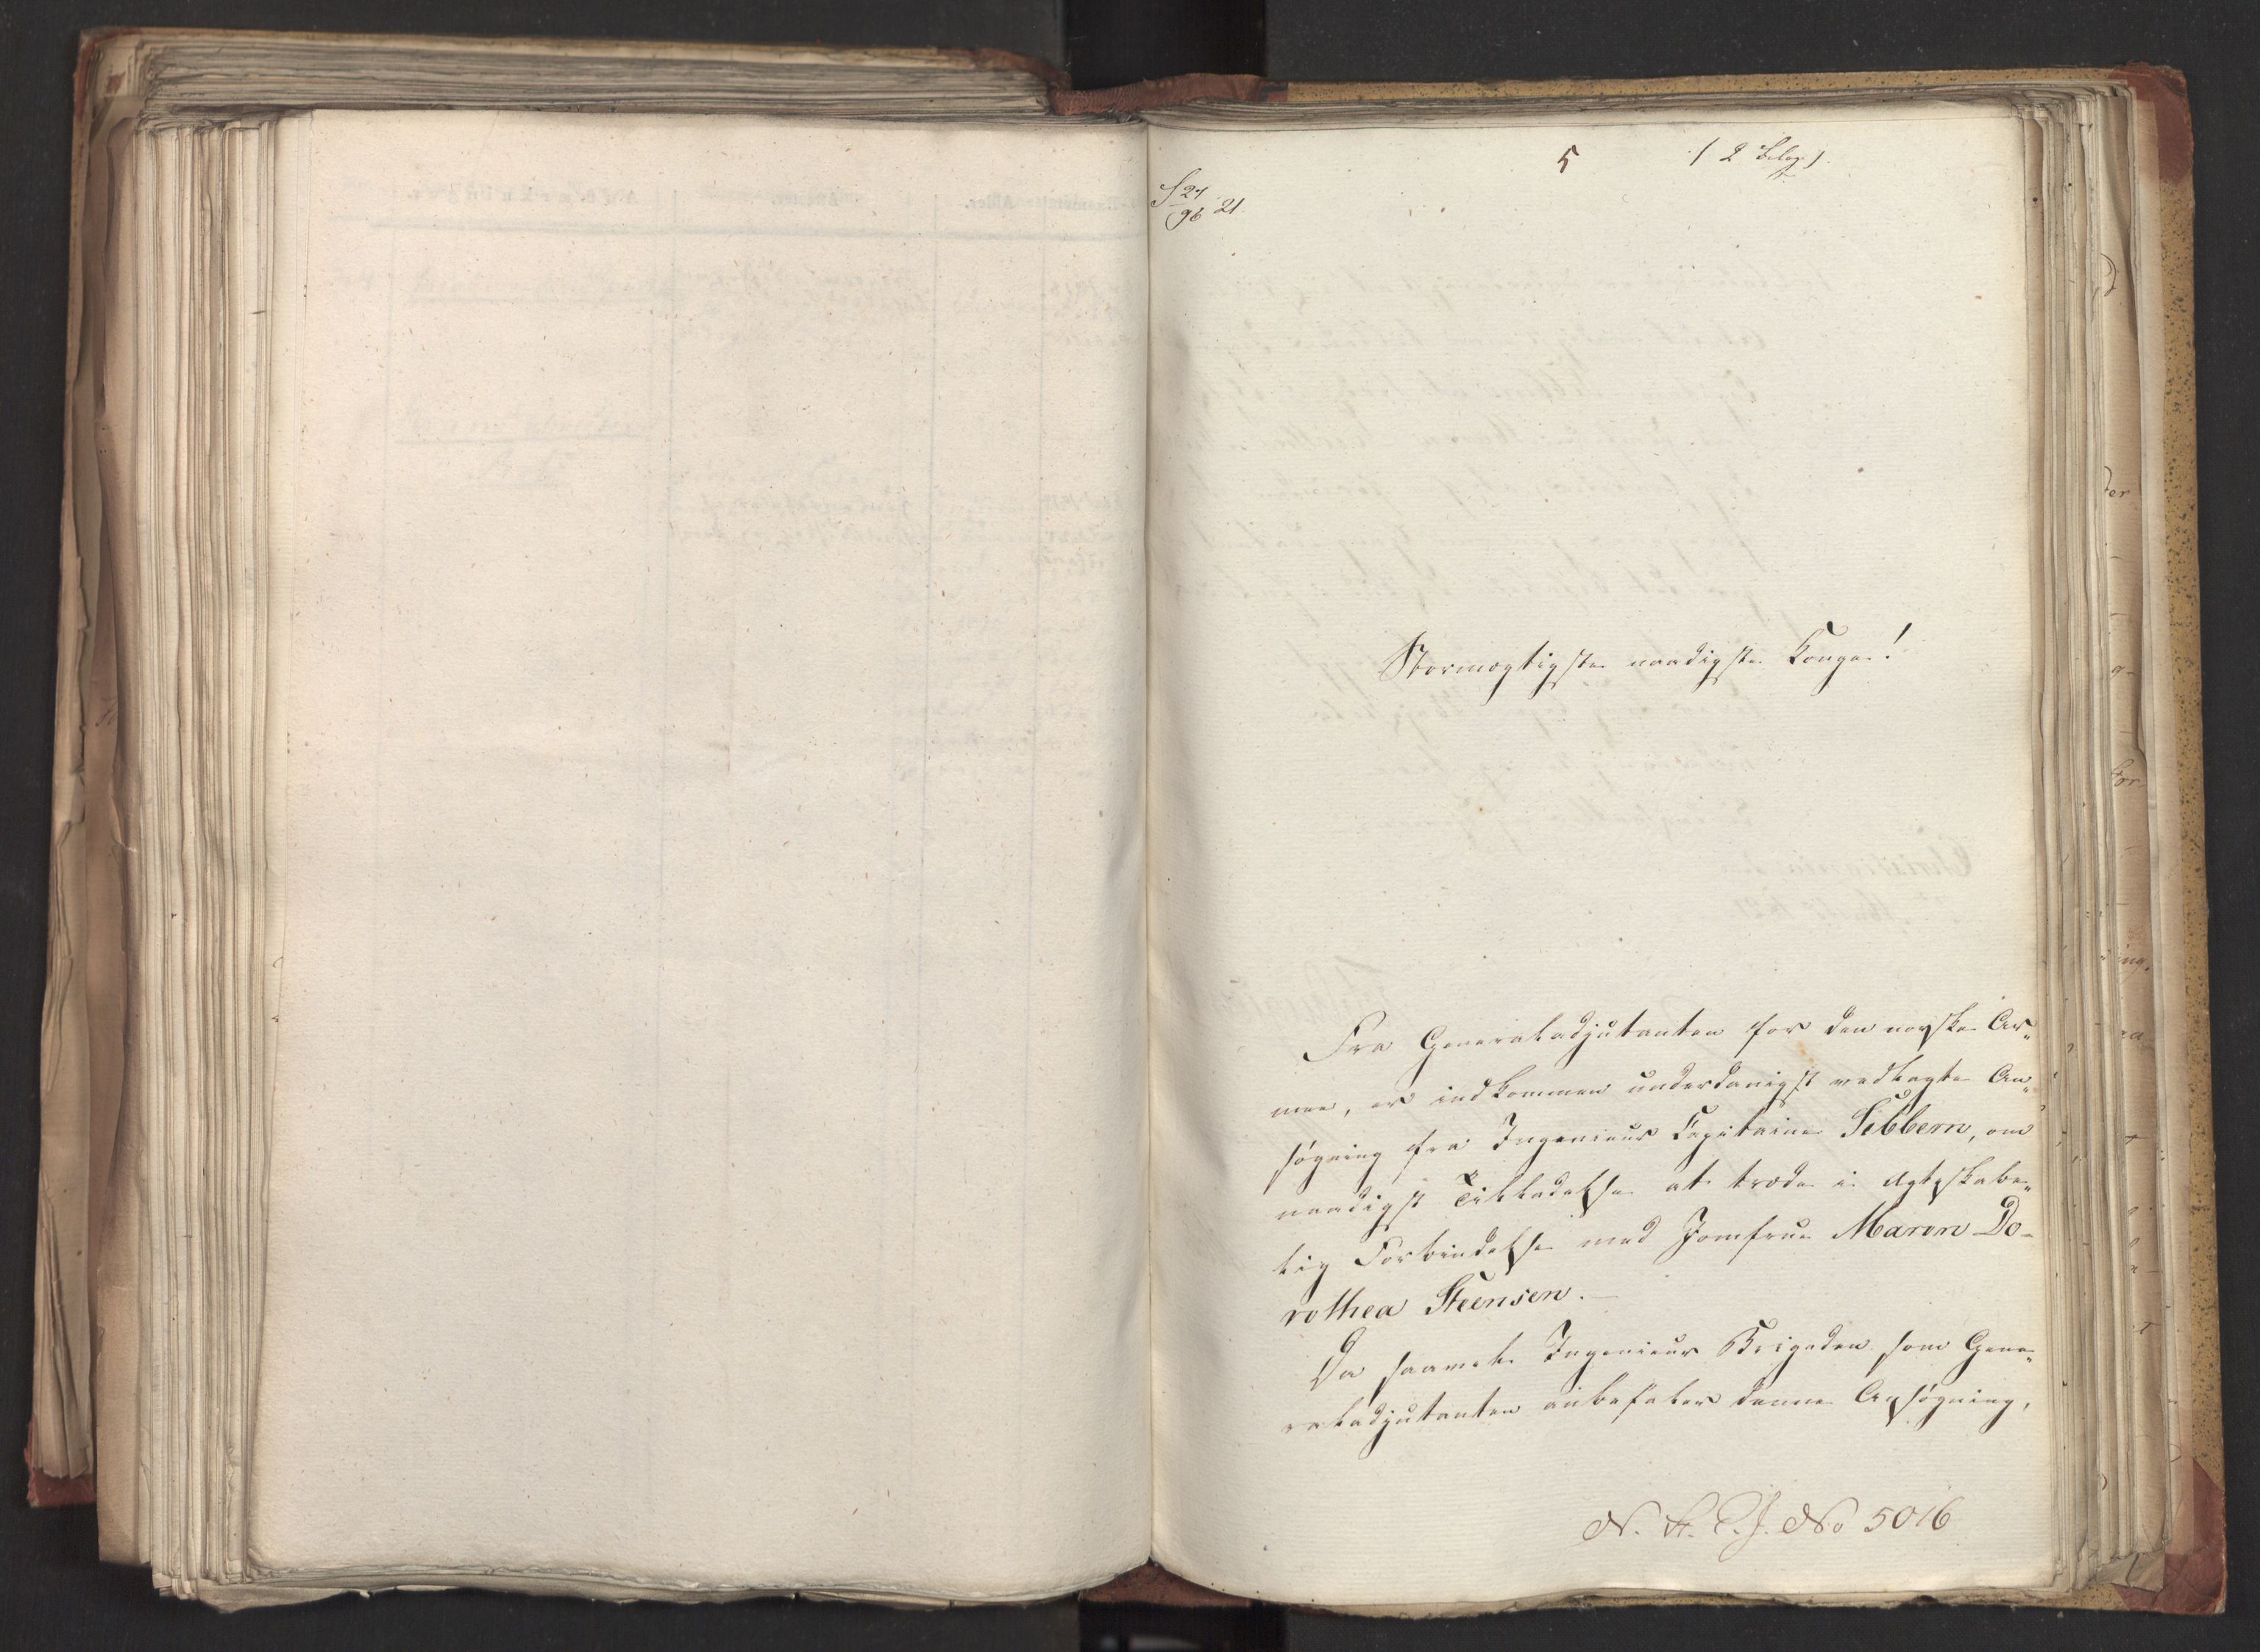 5 ( 2 Bilag )
S 21/9b 21
Stormægtigste naadigste Konge!
Fra Generaladjutanten for den norske Ar„
mee, er indkommen underdanigst vedlagte An„
søgning fra Ingenieur Capitaine Sibbern, om
naadigst Tilladelse at træde i Ægteskabe„
lig Forbindelse med Jomfrue Maren Do-
rothea Steensen. —
Da saavel Ingenieur Brigaden som Gene„
raladjutanten anbefaler denne Ansøgning,
N. St. C. J. No 5016